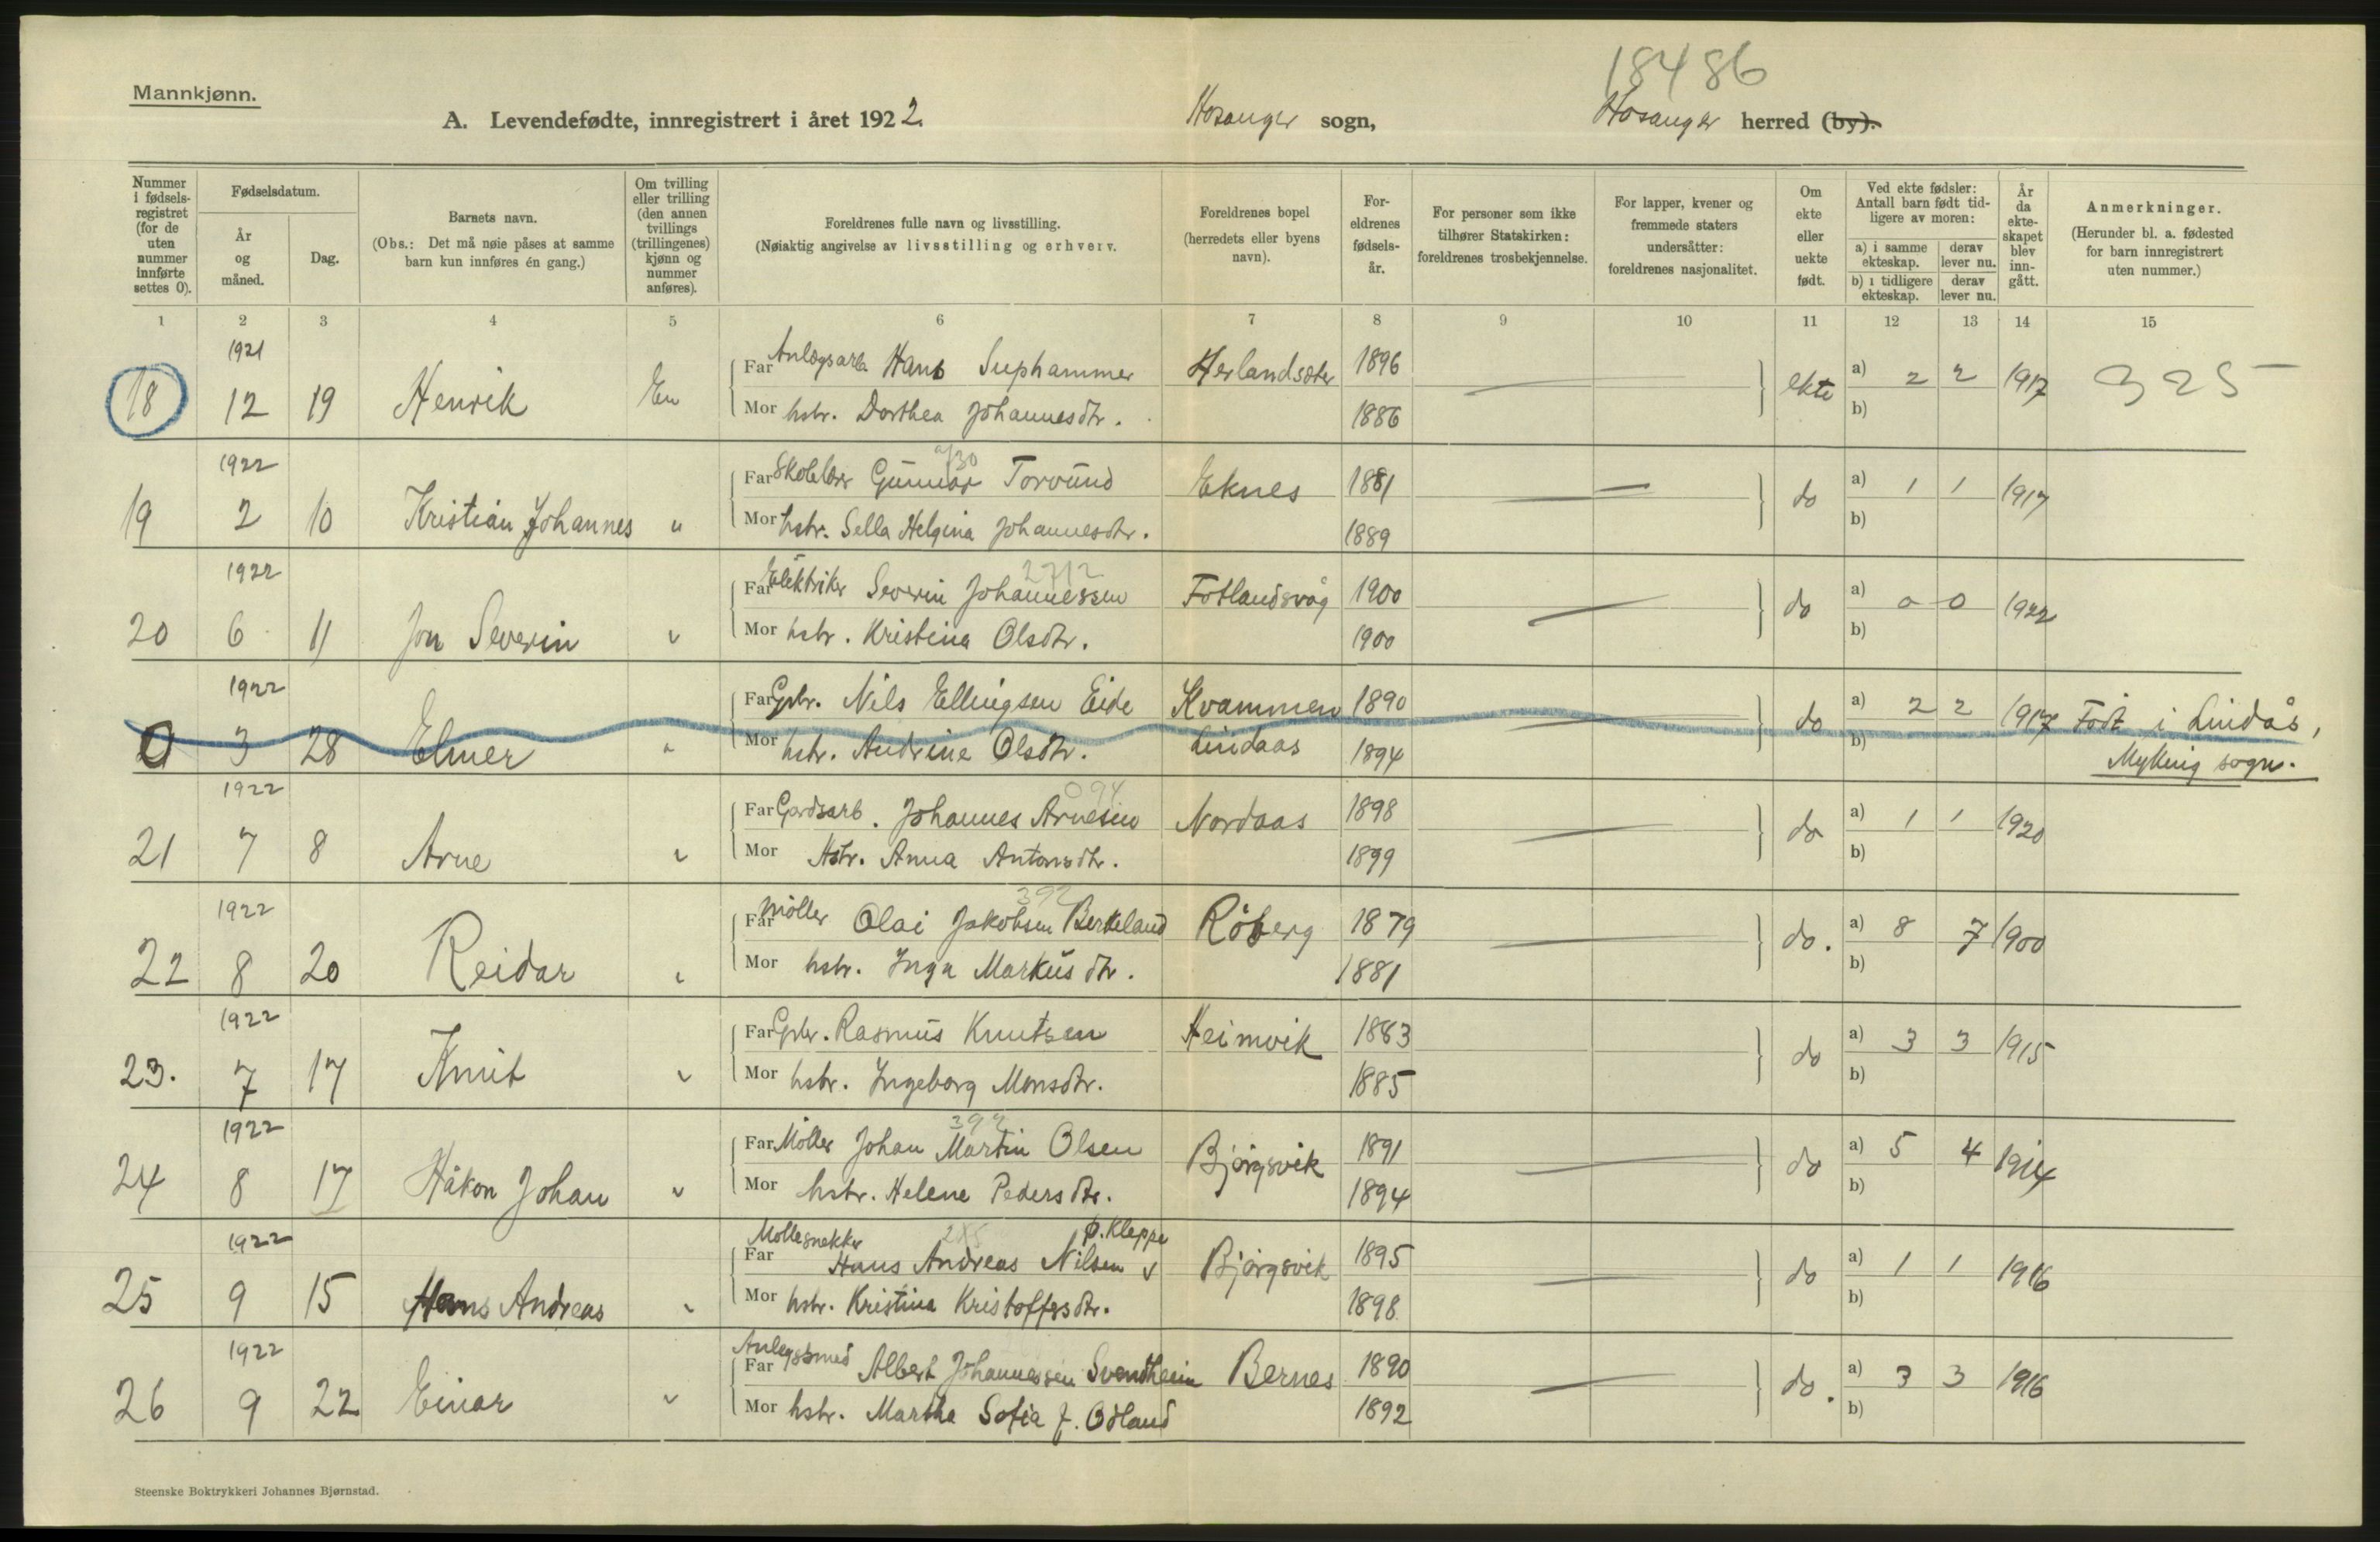 18486
Mannkjønn.
A. Levendefødte, innregistrert i året 1922. Hosanger sogn, Hosanger herred (by).
Nummer i fødsels-registret (for de uten nummer innførte settes 0).
Fødselsdatum.
År og måned.
Dag.
Barnets navn.
(Obs.: Det må nøie påses at samme barn kun innføres én gang.)
Om tvilling eller trilling (den annen tvillings (trillingenes) kjønn og nummer anføres).
Foreldrenes fulle navn og livsstilling.
(Nøiaktig angivelse av livsstilling og erhverv.
Foreldrenes bopel (herredets eller byens navn).
For-eldrenes fødsels-år.
For personer som ikke tilhører Statskirken: foreldrenes trosbekjennelse.
For lapper, kvener og fremmede staters undersåtter: foreldrenes nasjonalitet.
Om ekte eller uekte født.
Ved ekte fødsler: Antall barn født tid-ligere av moren:
a) i samme ekteskap. derav lever nu.
b) i tidligere ekteskap. derav lever nu.
År da ekte-skapet blev inn-gått.
Anmerkninger.
(Herunder bl. a. fødested for barn innregistrert uten nummer.)
1 2 3 4 5 6 7 8 9 10 11 12 13 14 15
1921
Far Anlægsarb Hans Suphammer Herlandsæter 1896
18 12 19 Henrik En ekte a) 2 2 1917 325
Mor hstr. Dorthea Johannesdtr. 1886 b)
1922
Far Skolelær Gunnar Torvund Eknes 1881
19 2 10 Kristian Johannes " do a) 1 1 1917
Mor hstr. Sella Helgina Johannesdtr. 1889 b)
1922 2712
Far Elektriker Severin Johannessen Fotlandsvåg 1900
20 6 11 Jon Severin " do a) 0 0 1922
Mor hstr. Kristina Olsdtr. 1900 b)
1922
Far Gbr. Nils Ellingsen Eide Kvammen 1890
0 3 28 Elmer " do a) 2 2 1917 Født i Lindås,
Mor hstr. Andrine Olsdtr. Lindaas 1894 b) Myking sogn.
1922 094
Far Gardsarb. Johannes Arnesen Nordaas 1898
21 7 8 Arne " do a) 1 1 1920
Mor Hstr. Anna Antonsdtr. 1899 b)
1922 392
Far Møller Olai Jakobsen Berkeland Röberg 1879
22 8 20 Reidar " do. a) 8 7 1900
Mor hstr. Inga Markusdtr. 1881 b)
1922
Far Gbr. Rasmus Knutsen Heimvik 1883
23. 7 17 Knut " do a) 3 3 1915
Mor hstr. Ingeborg Monsdtr. 1885 b)
1922 392
Far Møller Johan Martin Olsen Bjørgsvik 1891
24 8 17 Håkon Johan " do a) 5 4 1914
Mor hstr. Helene Pedersdtr. 1894 b)
1922 Møllesnekker p. Kleppe
Far Hans Andreas Nilsen Bjørgsvik 1895
25 9 15 Hans Andreas " do a) 1 1 1916
Mor hstr. Kristina Kristoffersdtr. 1898 b)
1922 Anlegssmed
Far Albert Johannessen Svendheim Bernes 1890
26 9 22 Einar " do. a) 3 3 1916
Mor hstr. Martha Sofia J. Odland 1892 b)
Steenske Boktrykkeri Johannes Bjørnstad.